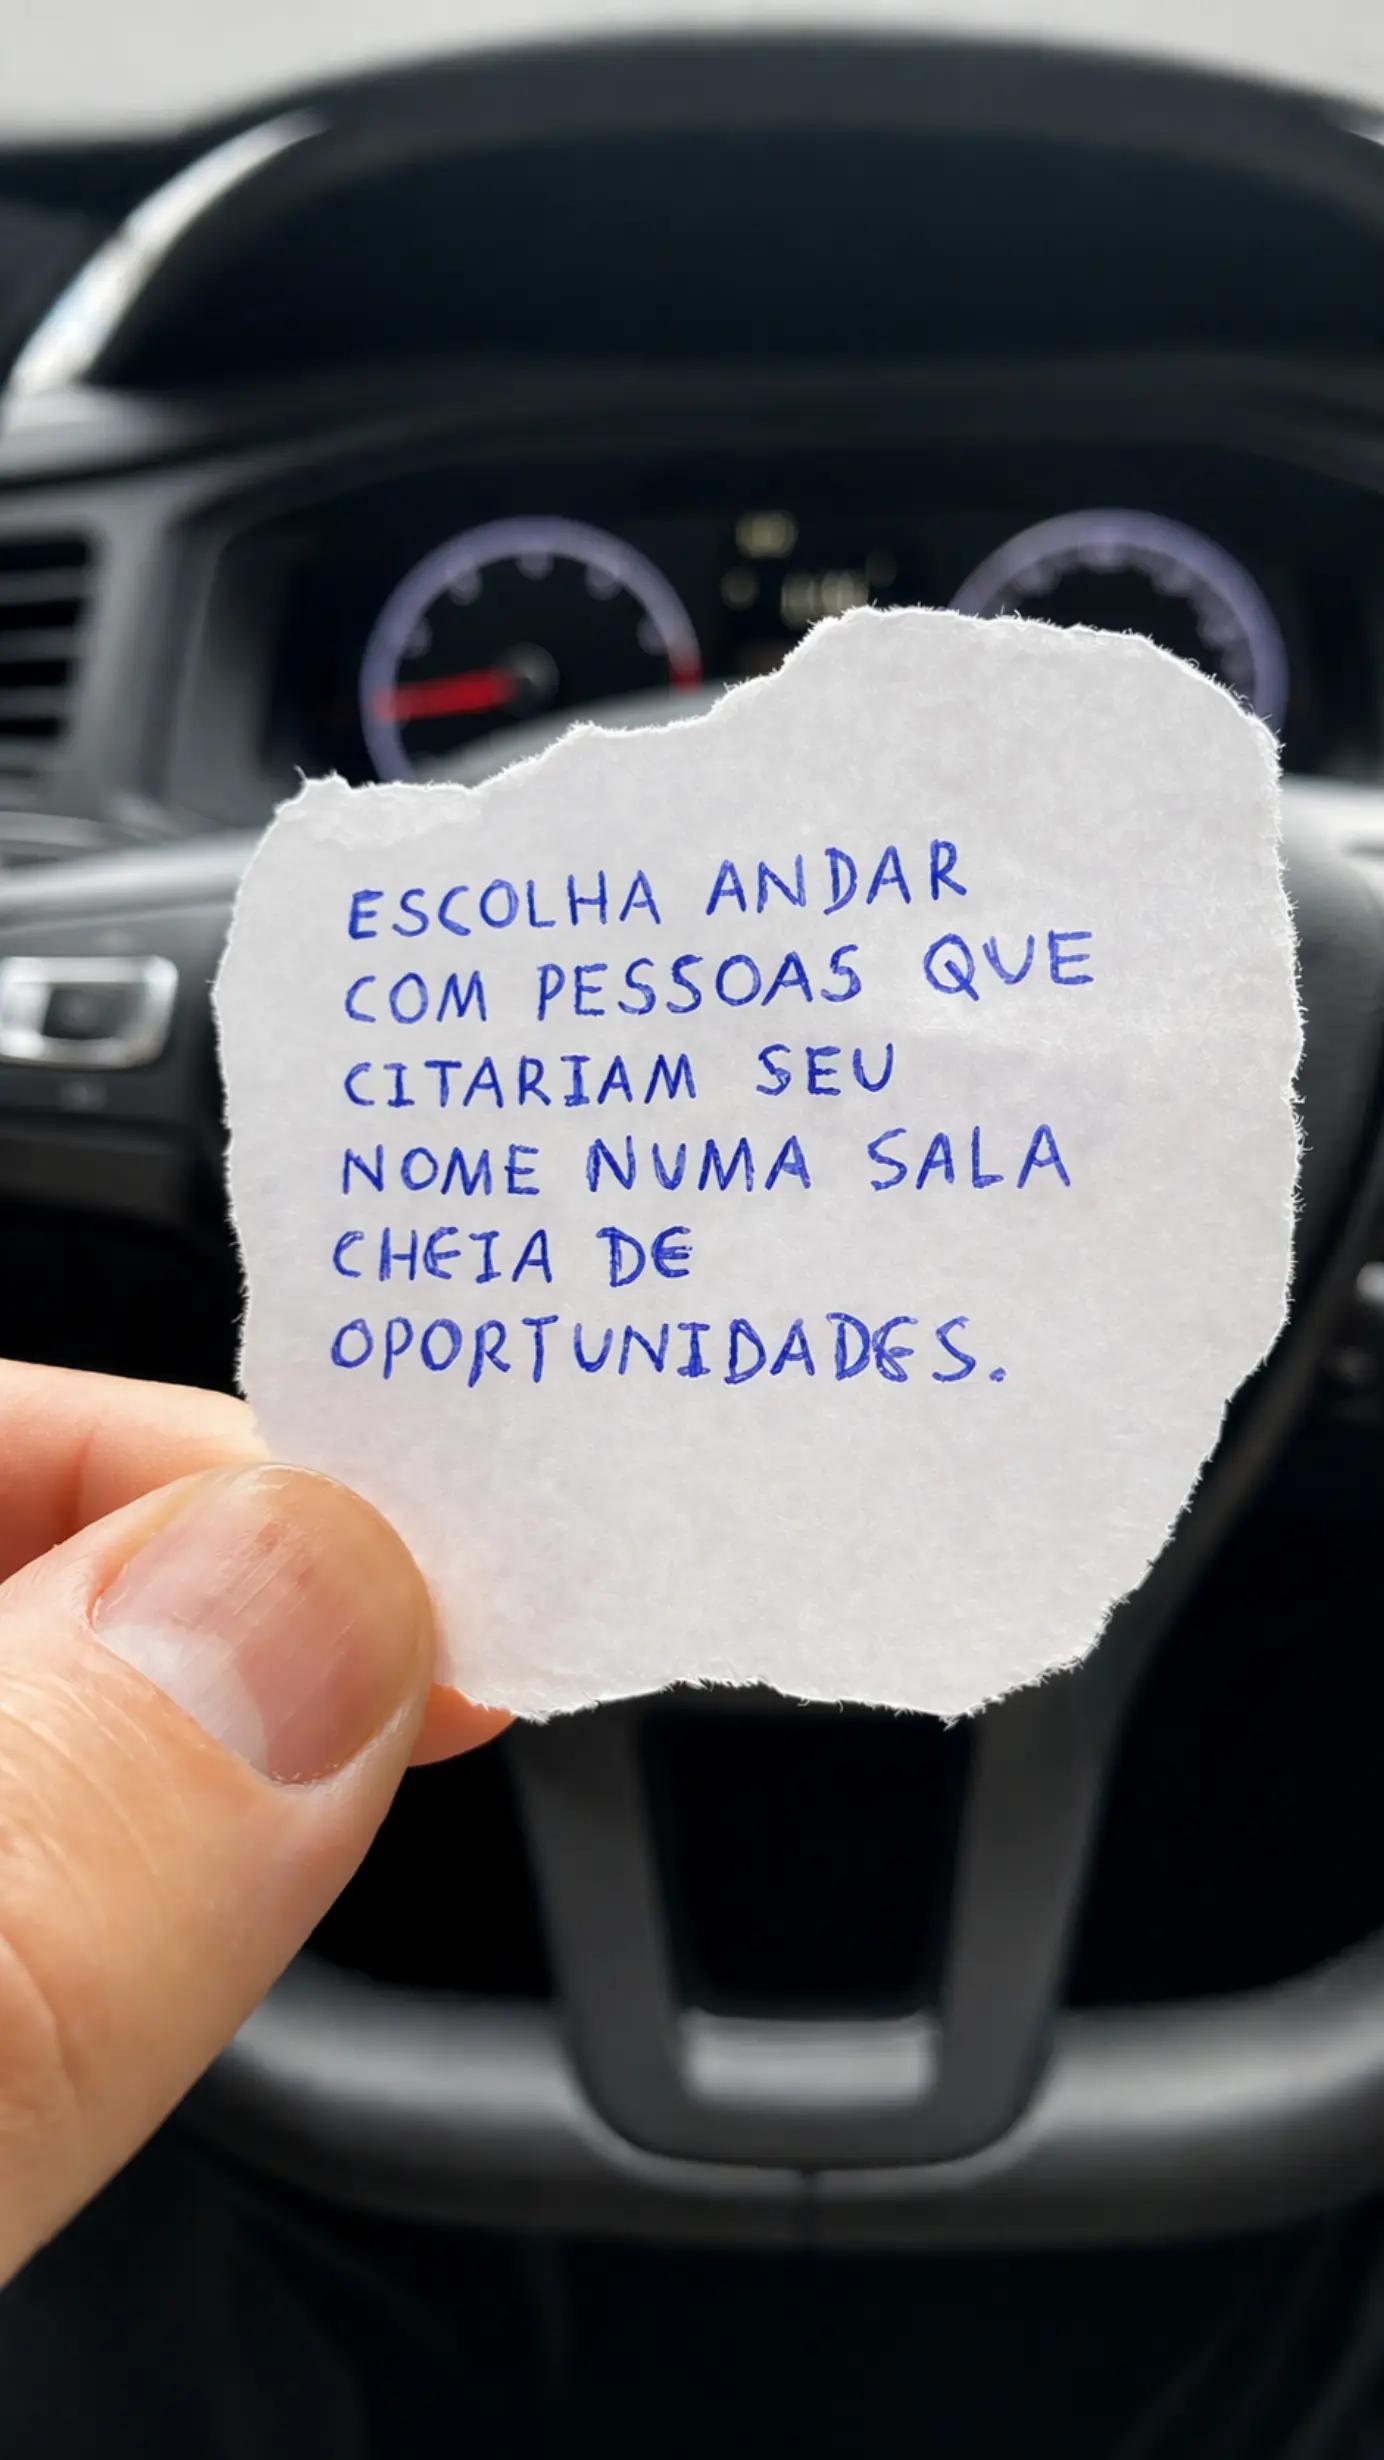 ESCOLHA ANDAR
COM PESSOAS QUE
CITARIAM SEU
NOME NUMA SALA
CHEIA DE
OPORTUNIDADES.